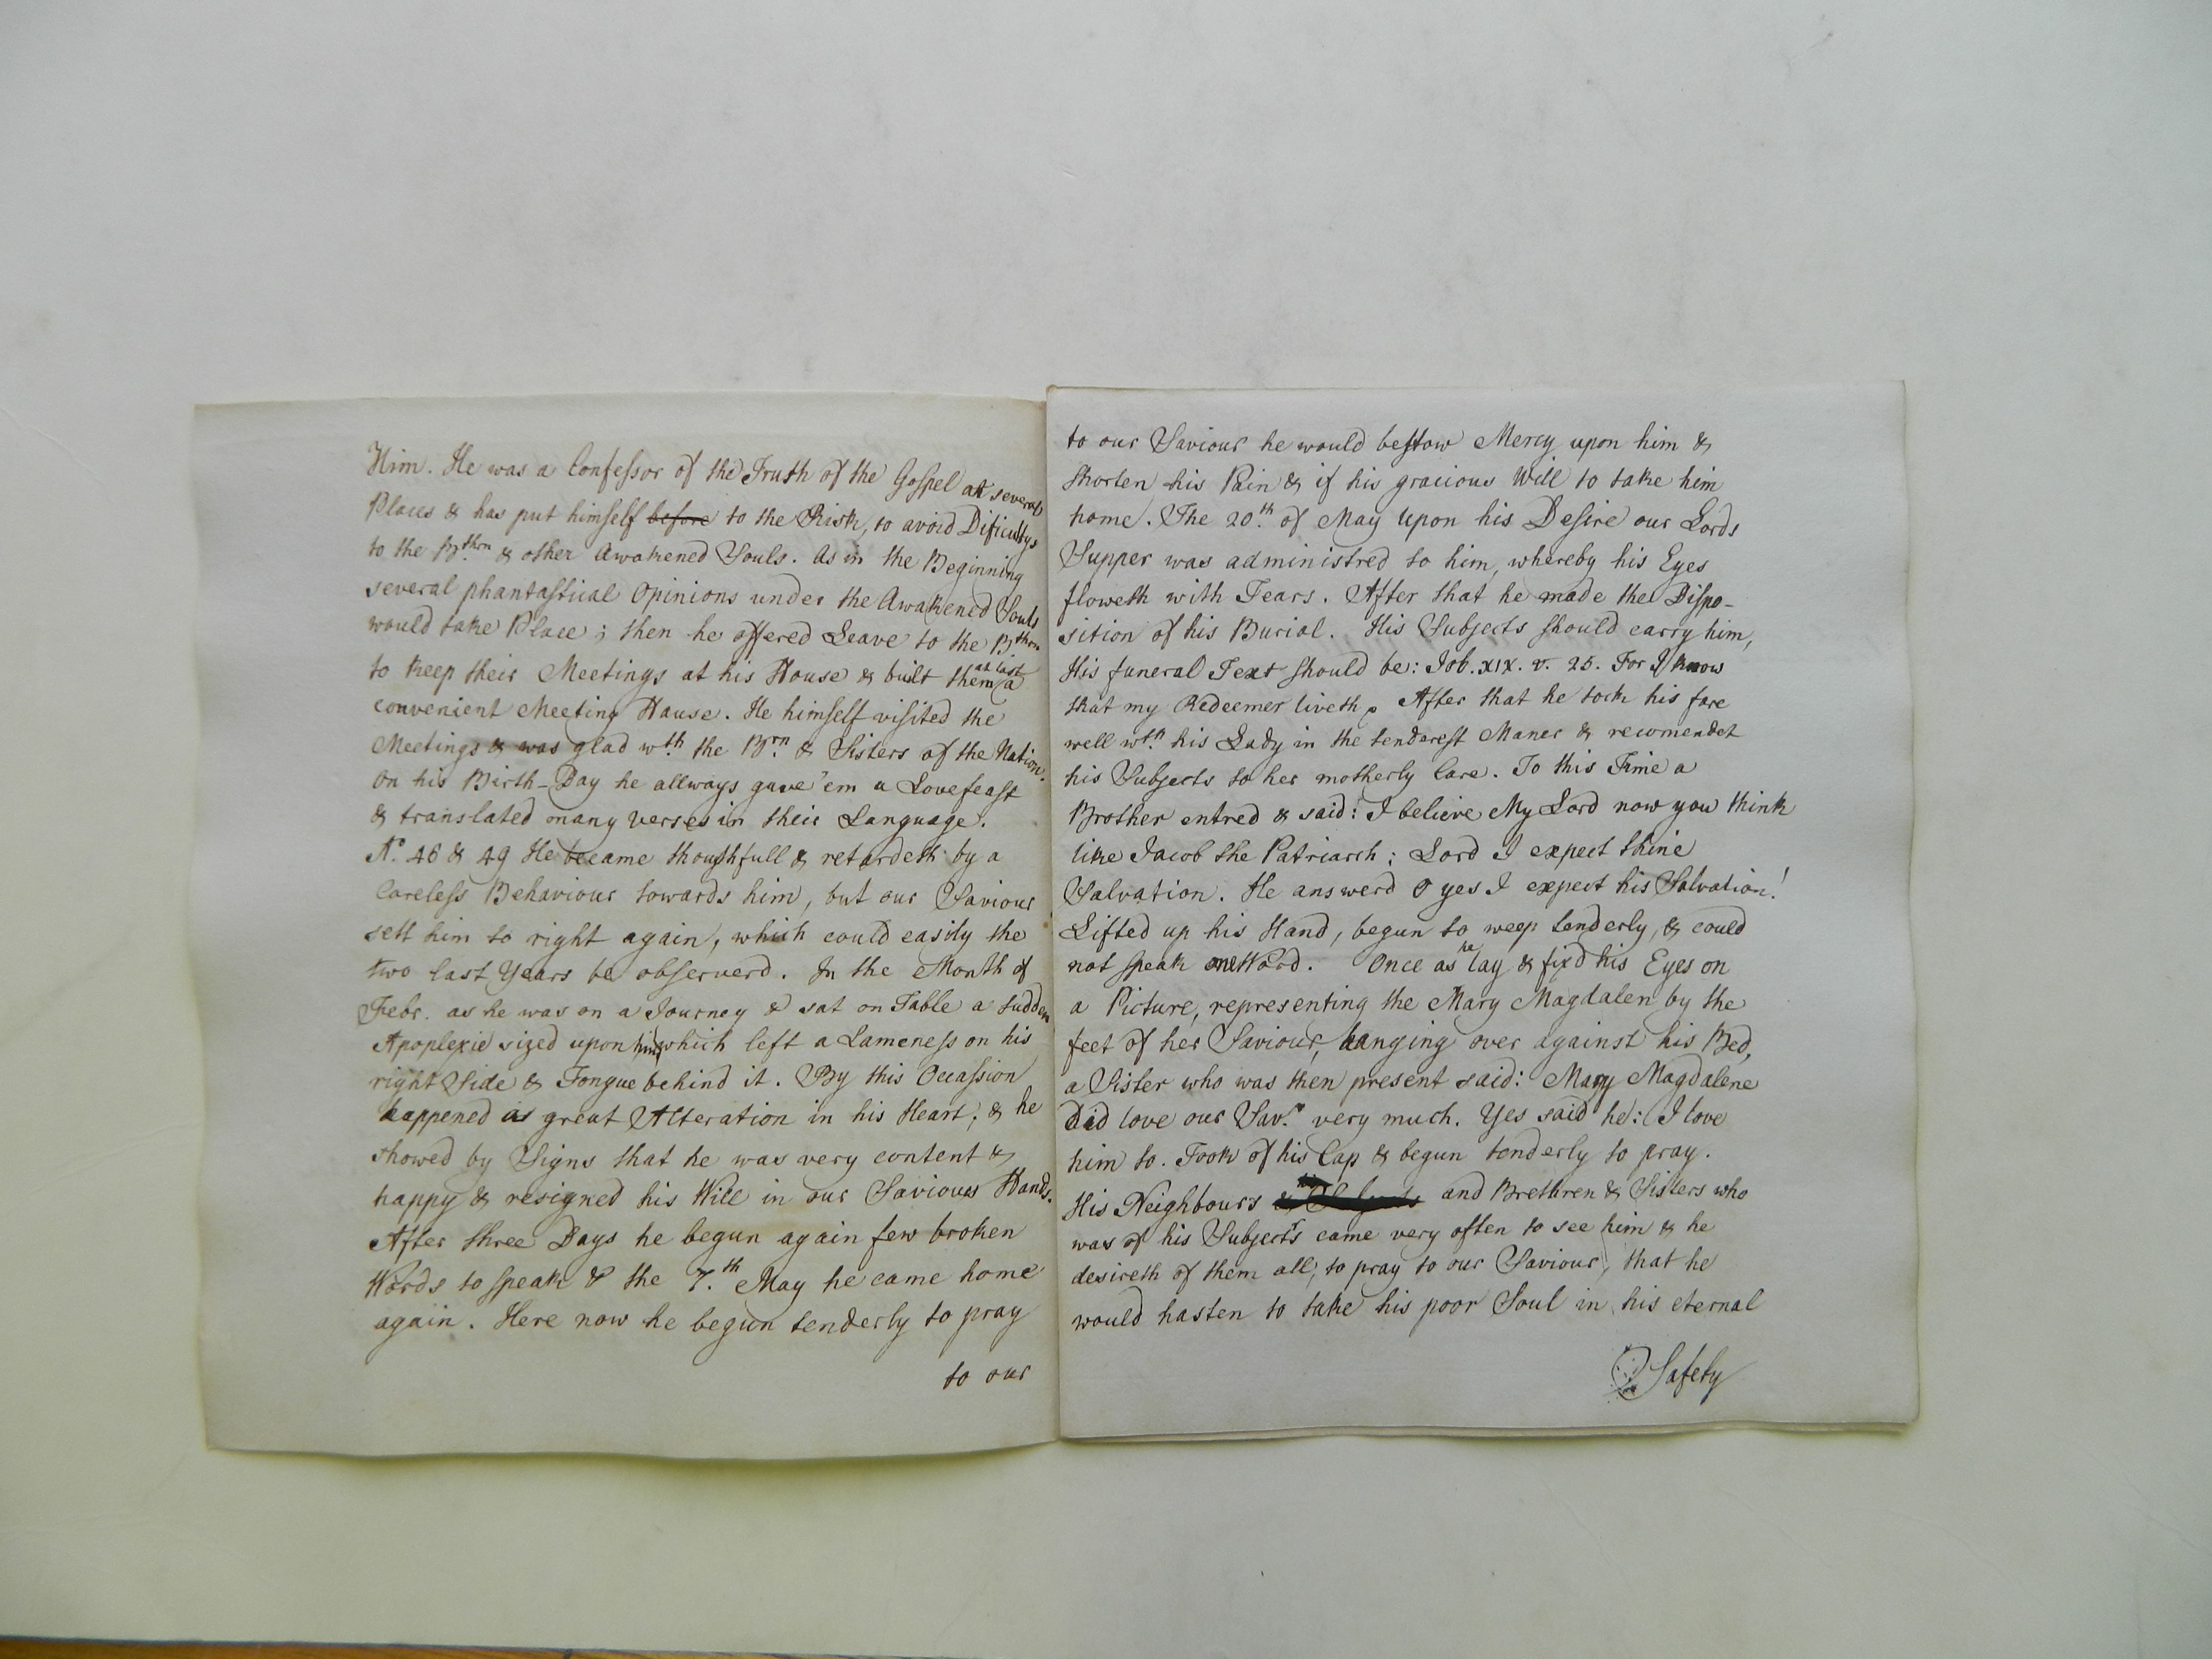 Him. He was a Confessor of the Truth of the Gospel at several
Places & has put himself before to the Risk, to avoid Dificultys
to the Bthrn & other Awakened Souls. As in the Beginning
several phantastical Opinions under the Awakened Souls
would take Place; then he offered Leave to the Bthrn
to keep their Meetings at his House & built them at last a
convenient Meeting Hause. He himself visited the
Meetings & was glad wth the Brn & Sisters of the Nation.
On his Birth-Day he allways gave 'em a Lovefeast
& translated many verses in their Language.
Ao 46 & 49 He became thoughfull & retardeth by a
Careless Behaviour towards him, but our Saviour
sett him to right again, which could easily the
two last Years be observerd. In the Month of
Febr. as he was on a Journey & sat on Table a sudden
Apoplexie sized upon him which left a Lameness on his
right Side & Tongue behind it. By this Occassion
happened as great Alteration in his Heart, & he
showed by Signs that he was very content &
happy & resigned his Will in our Saviours Hands.
After three Days he begun again few broken
Words to speak & the 7.th May he came home
again. Here now he begun tenderly to pray
to our
to our Saviour he would bestow Mercy upon him &
shorten his Pain & if his gracious Will to take him
home. The 20.th of May upon his Desire our Lords
Supper was administred to him, whereby his Eyes
floweth with Tears. After that he made the Dispo-
sition of his Burial. His Subjects should carry him,
His funeral Text should be: Job. XIX. v. 25. For I know
that my Redeemer liveth. After that he tock his fare
well wth his Lady in the tenderest Maner & recomendet
his Subjects to her motherly Care. To this Time a
Brother entred & said: I believe My Lord now you think
like Jacob the Patriarch; Lord I expect thine
Salvation. He answerd O yes I expect his Salvation!
Lifted up his Hand, begun to weep tenderly, & could
not speak one Word. Once as he lay & fix'd his Eyes on
a Picture, representing the Mary Magdalen by the
feet of her Saviour, hanging over against his Bed,
a Sister who was then present said: Mary Magdalene
Did love our Savr. very much. Yes said he: I love
him to. Took of his Cap & begun tenderly to pray.
His Neighbours and Brethren & Sisters who
was of his Subjects came very often to see him & he
desireth of them all, to pray to our Saviour, that he
would hasten to take his poor Soul in his eternal
Safety